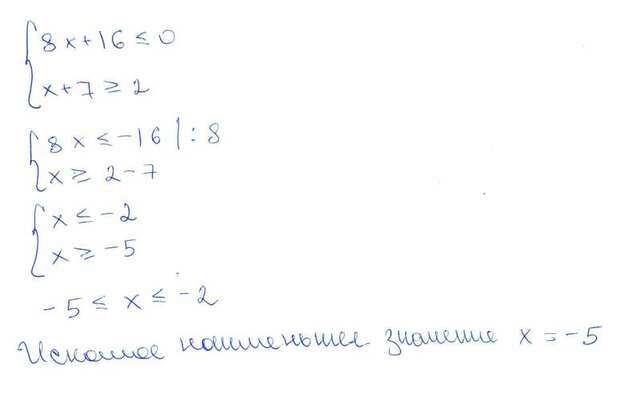 8x+16≤0
x+7≥2
8x≤-16|:8
x≥2-7
x≤-2
x≥-5
-5≤x≤-2
Искомое наименьшее значение x=-5